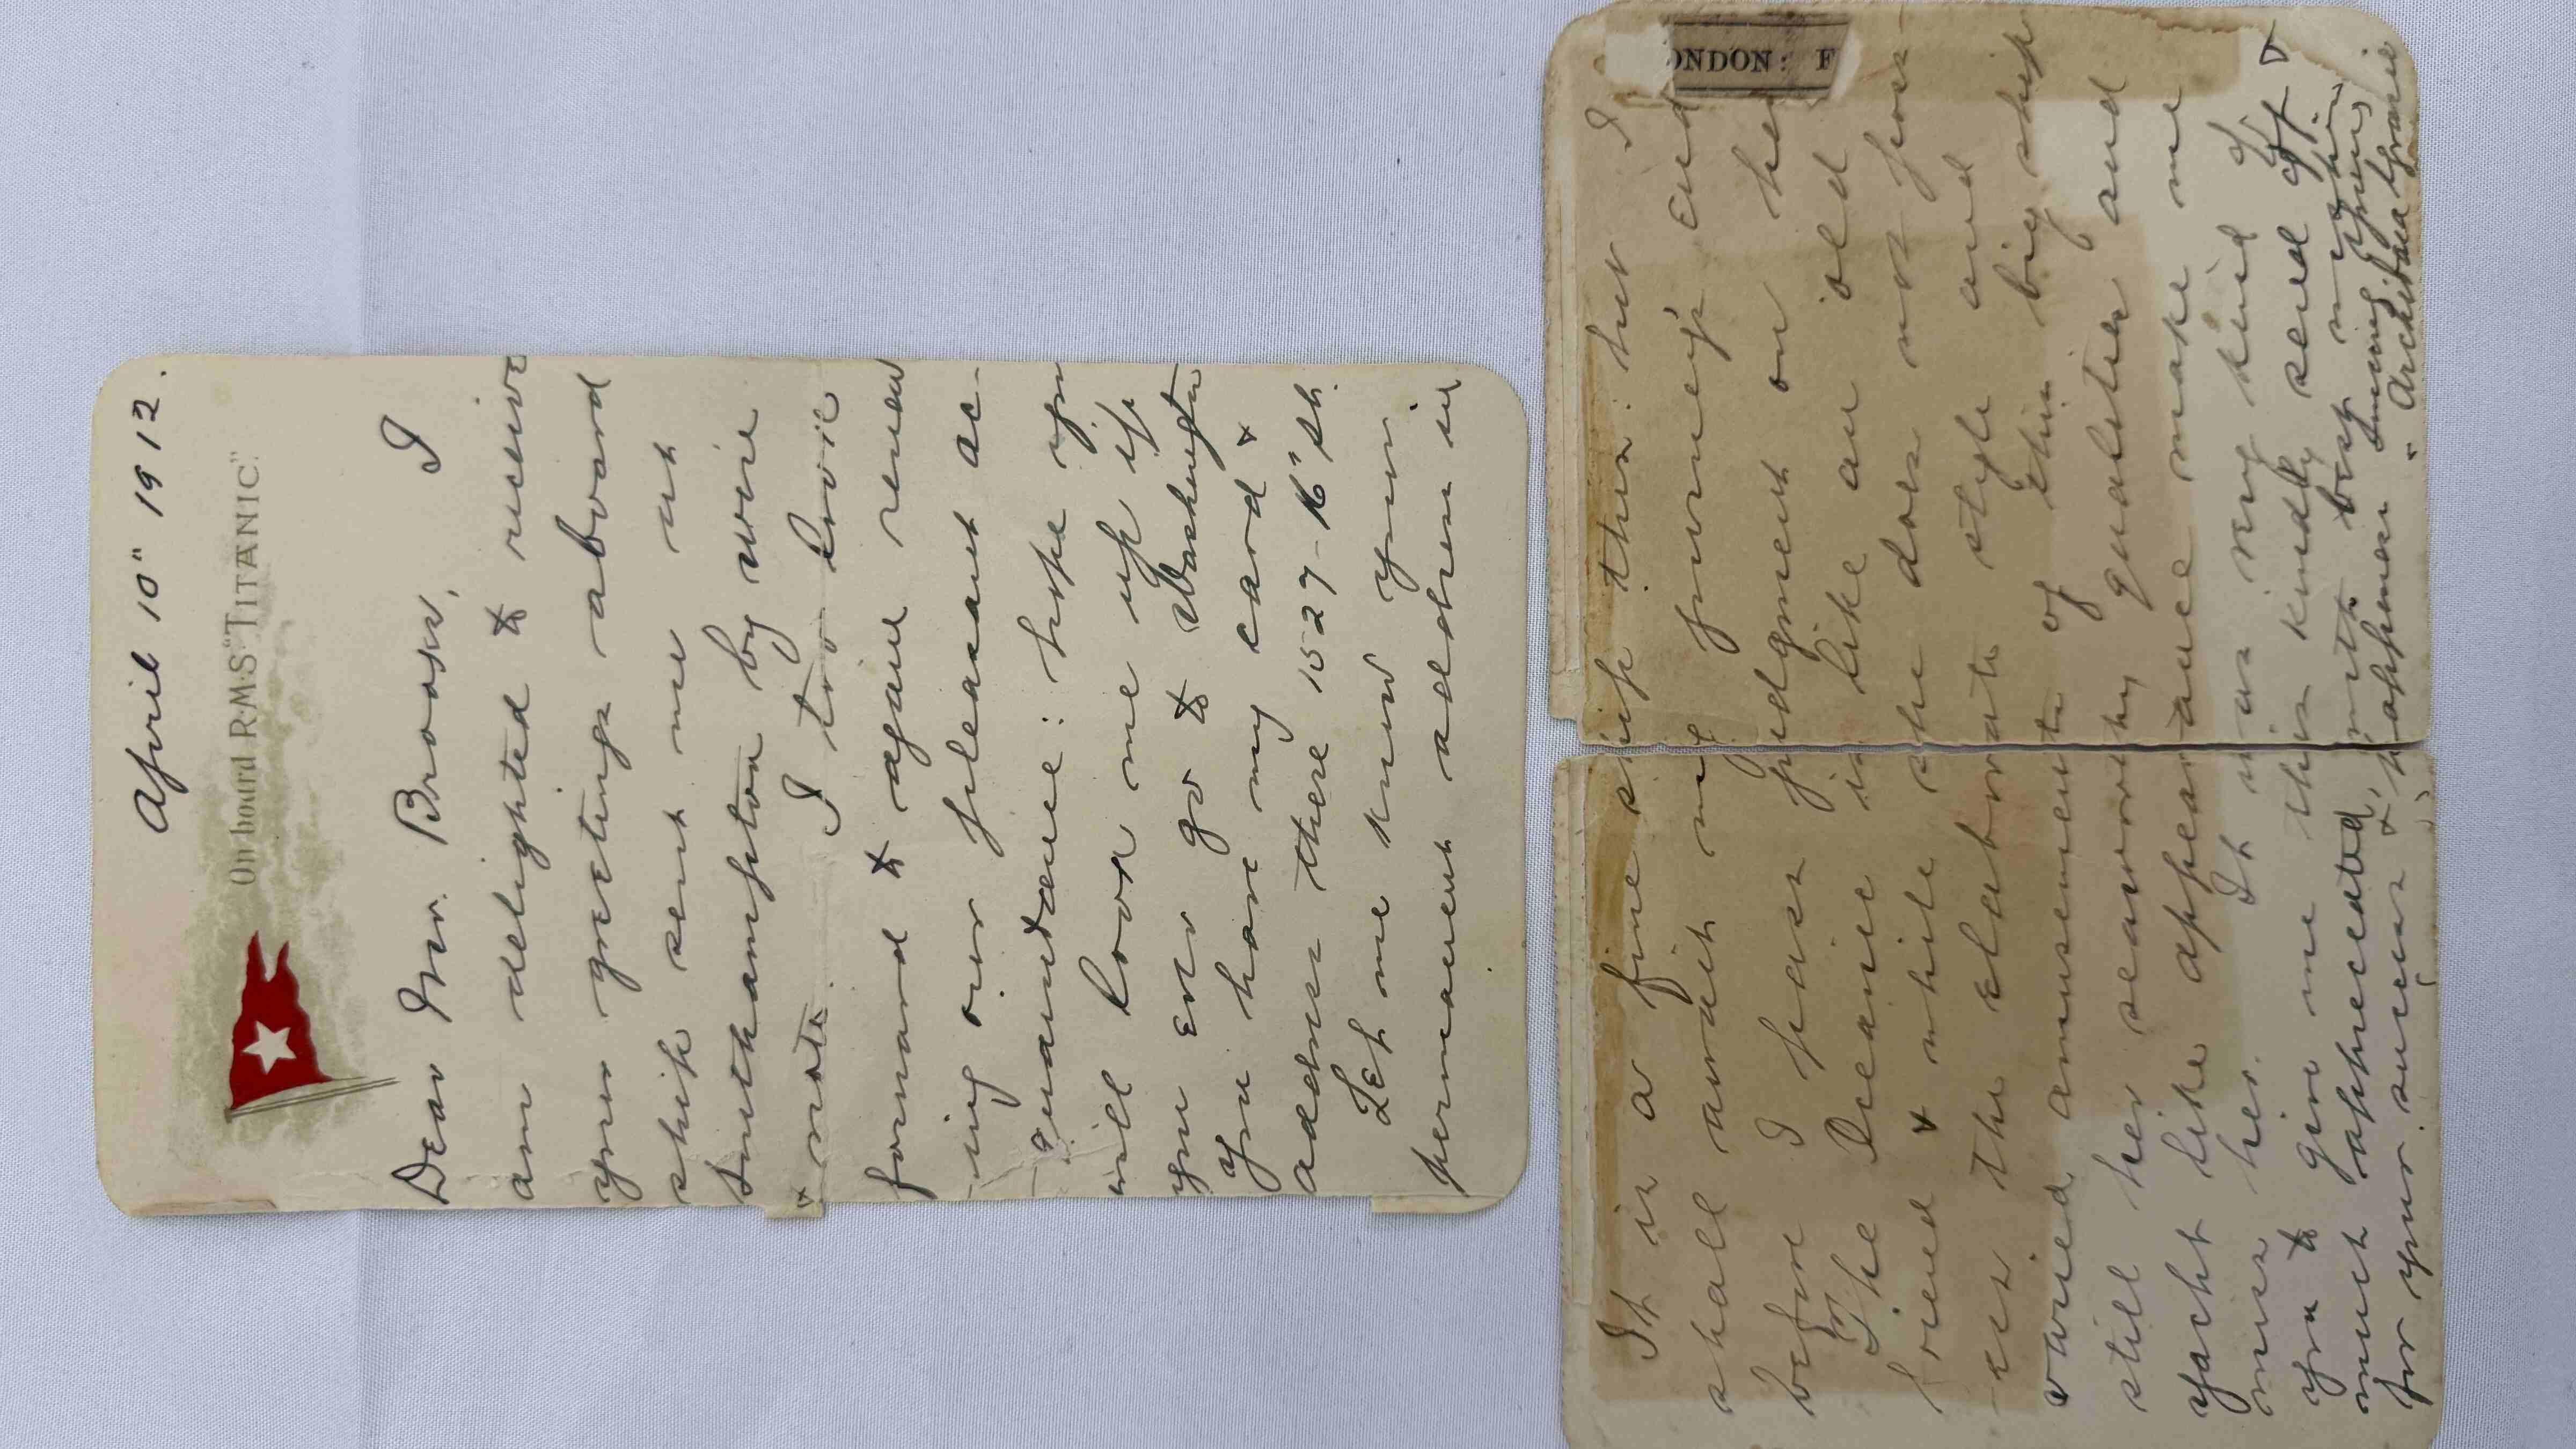 April 10" 1912.
On board R.M.S. "TITANIC".
Dear Mr. Brooks, I
am delighted to receive
your greetings aboard
ship sent me at
Southampton by wire
& note. I too look
forward to again renew
-ing our pleasant ac-
quaintance: hope you
will look me up if
you ever go to Washington
you have my card &
address there 1527-16" St.
Let me know your
permanent address in
ONDON: F
It is a fine ship this but I
shall await my journey's end
before I pass judgment on her
The Oceanic is like an old
friend & while she does not pos-
ses the elaborate style and
varied amusements of this big ship
still her seaworthy qualities and
yacht like appearance make me
miss her. It was very kind of
you to give me this kindly send off &
much appreciated, with best wishes
for your success & happiness Sincerely yours
" Archibald Gracie